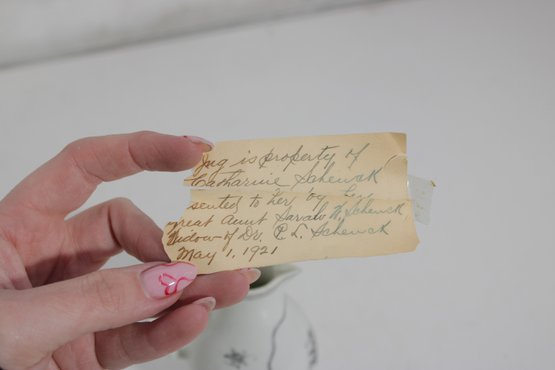 Jug is property of
Catharine Schenck
sented to her by her
great Aunt Sarah H. Schenck
Widow of Dr. P. L. Schenck
May 1, 1921